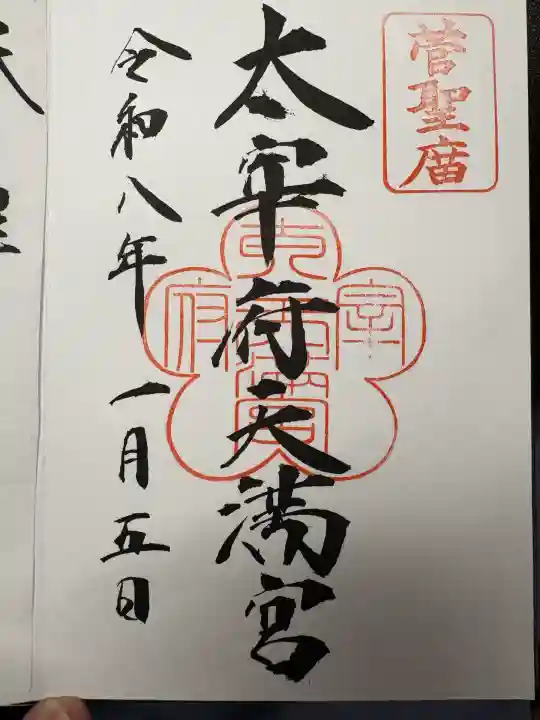 菅聖庿
太宰府天満宮
令和八年一月五日